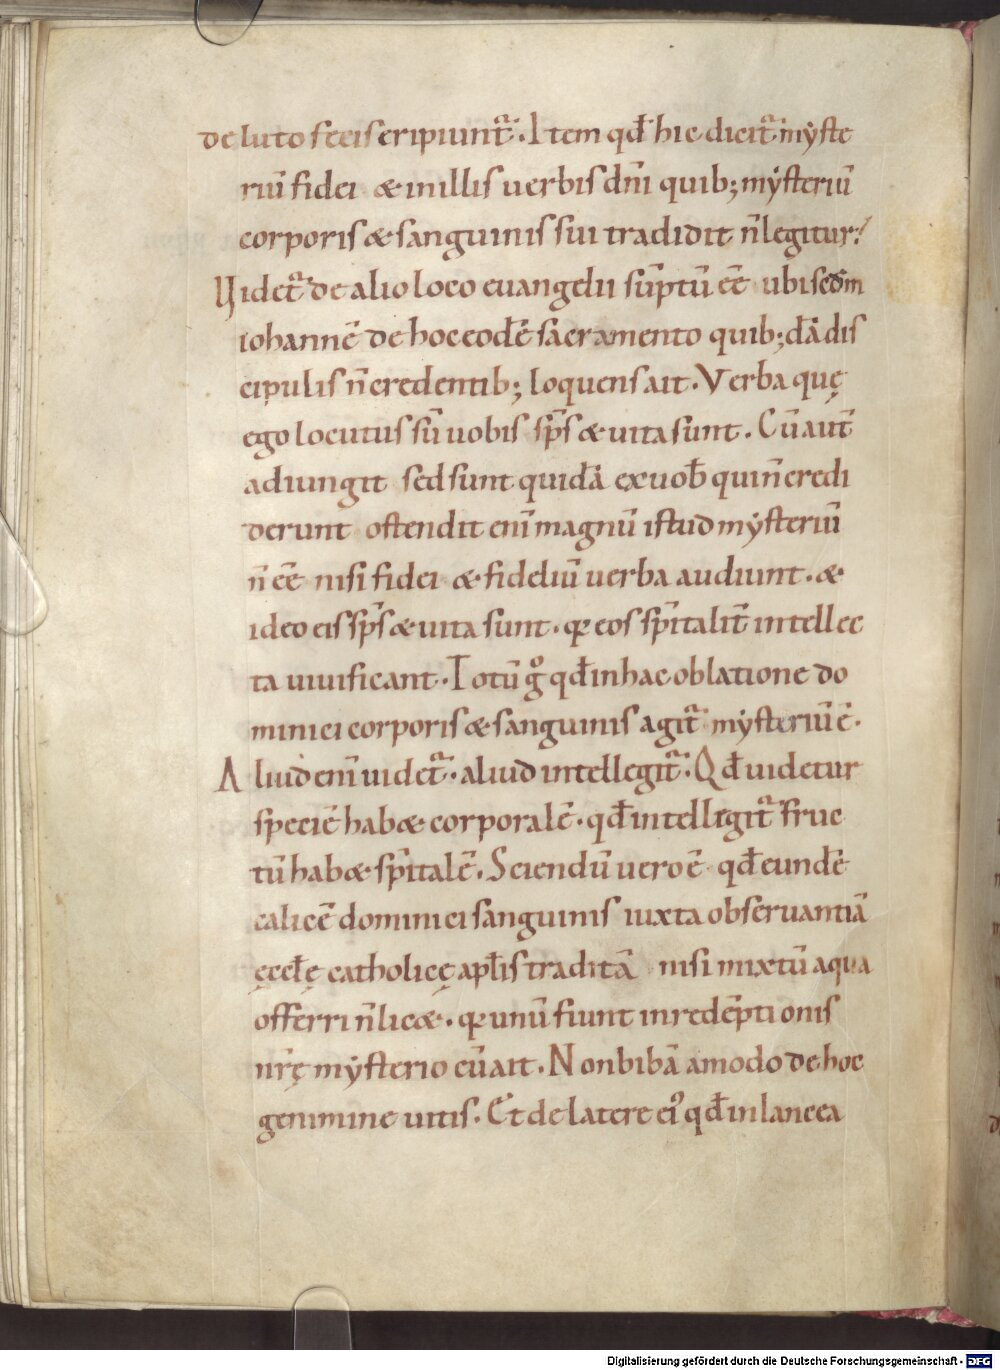 de luto fecis eripiunt᷑. Item qđ hic dicit᷑ mẏste
riū fidei & in illis verbis dn̄i quib; mẏsteriū
corporis & sanguinis sui tradidit n̄ legitur?
Videt᷑ de alio loco euangelii sūptū eē ubi secdm
iohannē de hoc eodē sacramento quib;dā dis
cipulis n̄ credentib; loquens ait. Verba quę
ego locutus sū uobis sp̄s & uita sunt. Cū aut̄
adiungit sed sunt quidā ex uob̄ qui n̄ credi
derunt ostendit eni̅ magnū istud mẏsteriū
n̄ eē nisi fidei & fideliū verba audiunt. &
ideo eis sp̄s & uita sunt. qr eos sp̄italit̄ intellec
ta uiuificant. Totū gͦ qđ in hac oblatione do
minici corporis & sanguinis agit᷑ mẏsteriū ē.
Aliud eni̅ uidet᷑. aliud intellegit᷑. Qđ uidetur
speciē hab& corporalē. qđ intellegit᷑ fruc
tū hab& sp̄italē. Sciendū uero ē qđ eundē
calicē dominici sanguinis iuxta obseruantiā
ęccłę catholicę apłis traditā nisi mixtū aqua
offerri n̄ lic&. qr unū fiunt in redēptionis
nr̄ę mẏsterio cū ait. Non bibā amodo de hoc
genimine uitis. Et de latere eiꝰ qđ in lancea
Digitalisierung gefördert durch die Deutsche Forschungsgemeinschaft - DFG